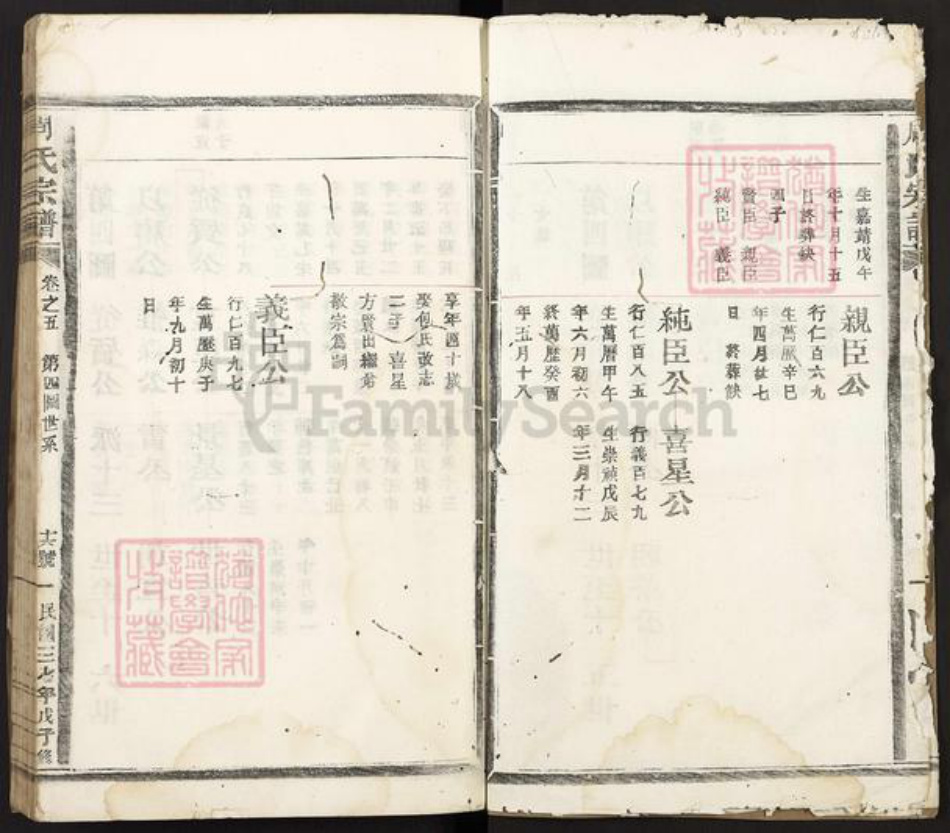 周氏宗譜
生嘉靖戊午
年十月十五
日終葬缺
四子
賢臣 親臣
純臣 義臣
親臣公
行仁百六九
生萬歷辛巳
年四月廿七
日 終葬缺
純臣公
行仁百八五
生萬曆甲午
年六月初六
終萬歷癸酉
年五月十八
喜星公
行義百七九
生崇禎戊辰
年三月十二
享年四十歲
娶包氏改志
二子 喜星
方賢出繼希
敬宗為嗣
義臣公
行仁百九七
生萬歷庚子
年九月初十
日
周氏宗譜
卷之五 第四圖世系 十六號 一 民國三七年戊子修
FamilySearch